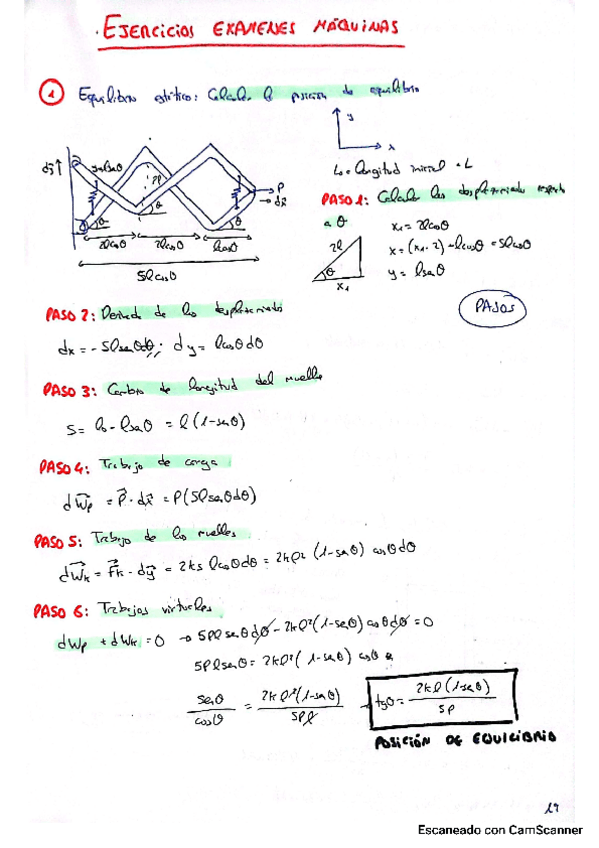 Ejercicios exámenes máquinas
1 Equilibrio estático: Calcular la posición de equilibrio
y
x
L₀ = longitud inicial = L
PASO 1: Calcular los desplazamientos respecto
a θ
2l
θ
x₁
x₁ = 2lcosθ
x = (x₁·2) + lcosθ = 5lcosθ
y = lsenθ
θ
θ
P
dx
2lcosθ
2lcosθ
lcosθ
5lcosθ
PASOS
PASO 2: Derivada de los desplazamientos
dx = -5lsenθdθ; dy = lcosθdθ
PASO 3: Cambio de longitud del muelle
S = l₀ - lsenθ = l(1-senθ)
PASO 4: Trabajo de carga
dWp = P · dx = P(5lsenθdθ)
PASO 5: Trabajo de los muelles
dWk = Fk · dy = 2ks lcosθdθ = 2kl² (1-senθ) cosθdθ
PASO 6: Trabajos virtuales
dWp + dWk = 0 → 5Plsenθdθ - 2kl²(1-senθ) cosθdθ = 0
5Plsenθ = 2kl² (1-senθ) cosθ
senθ/cosθ = 2kl²(1-senθ)/5Pl → tgθ = 2kl(1-senθ)/5P
POSICIÓN DE EQUILIBRIO
Escaneado con CamScanner